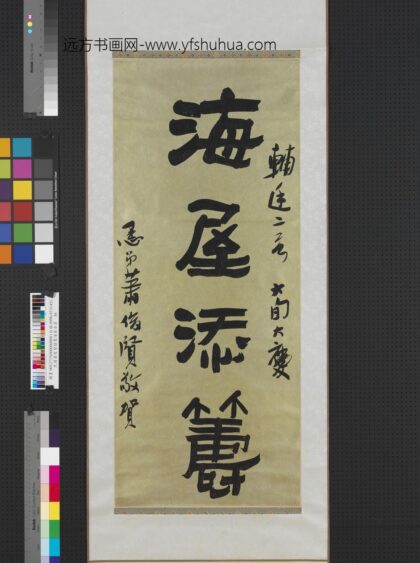 远方书画网-www.yfshuhua.com
輔廷二 六旬大慶
海屋添籌
愚弟蕭俊賢敬賀